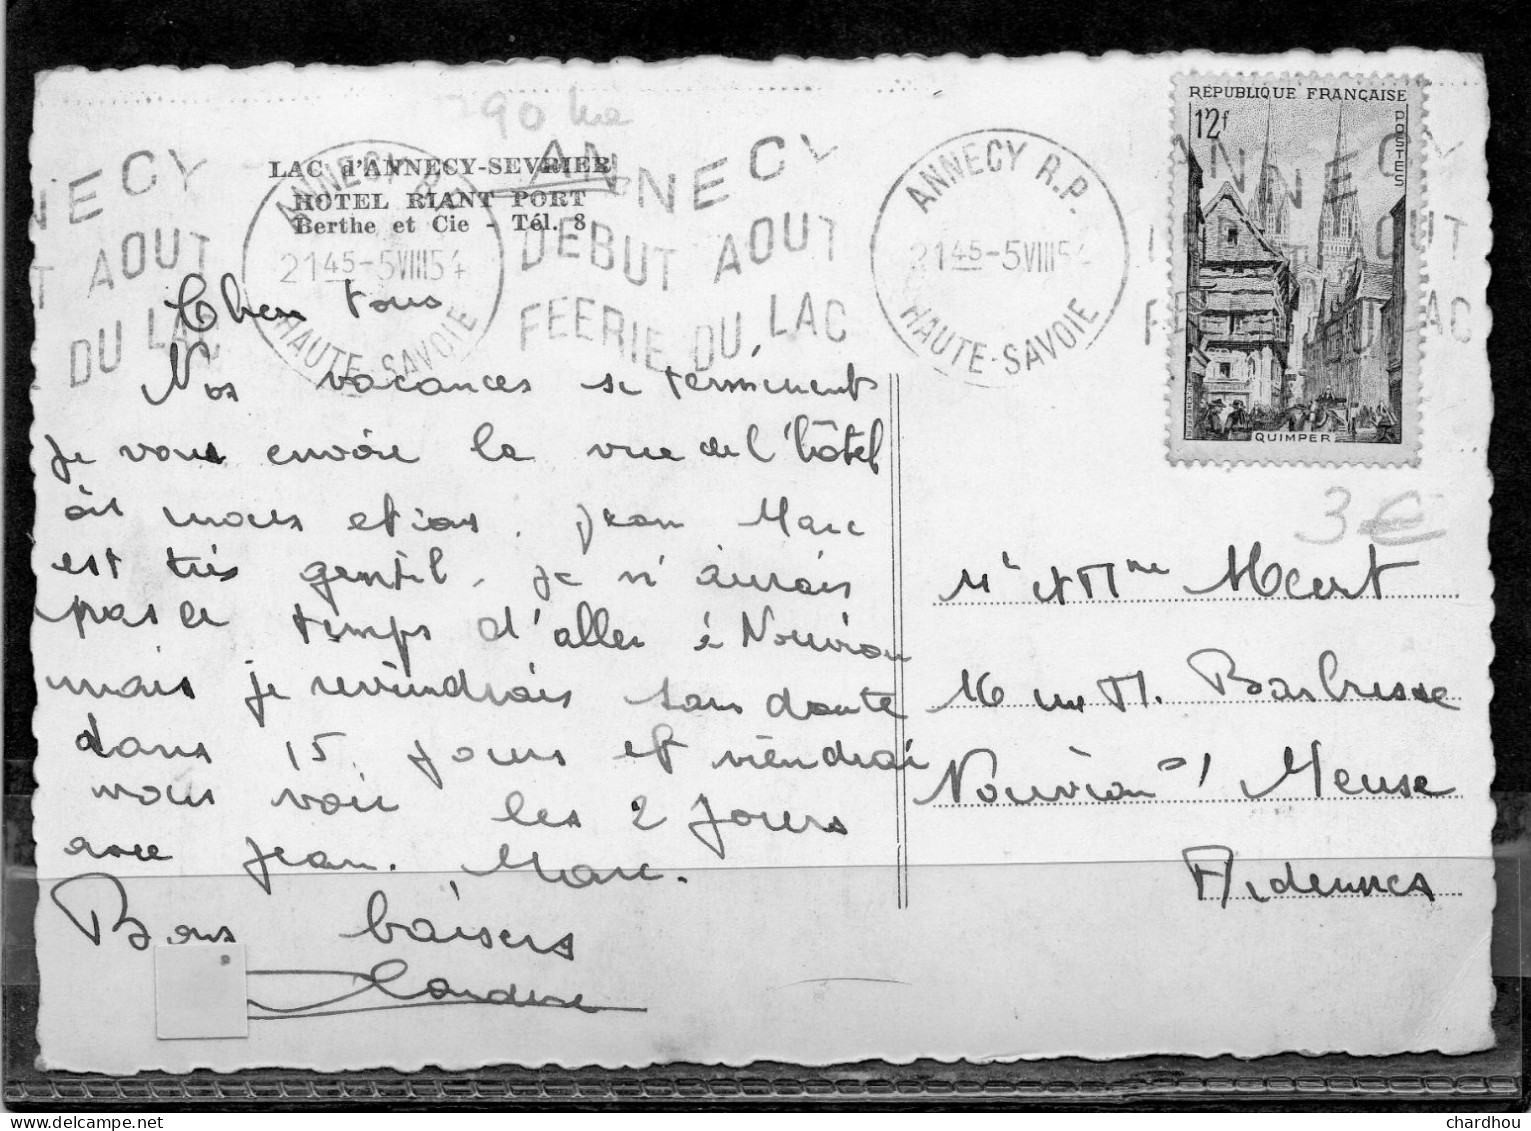 90
LAC d'ANNECY-SEVRIER
HOTEL RIANT PORT
Berthe et Cie - Tél. 8
ANNECY R.P.
21 45 - 5 VIII 54
HAUTE-SAVOIE
ANNECY
DEBUT AOUT
FEERIE DU LAC
ANNECY R.P.
21 45 - 5 VIII 54
HAUTE-SAVOIE
RÉPUBLIQUE FRANÇAISE
12f
POSTES
QUIMPER
3€
Chers tous
Nos vacances se terminent
je vous envoie la vue de l'hôtel
où nous etions. Jean Marc
est très gentil. je n'aurais
pas le temps d'aller à Nouvion
mais je reviendrais sans doute
dans 15 jours et viendrai
vous voir les 2 jours
avec Jean. Marc.
Bons baisers
Mr et Mme
16 rue M. Barbusse
Nouvion s/ Meuse
Ardennes
chardhou